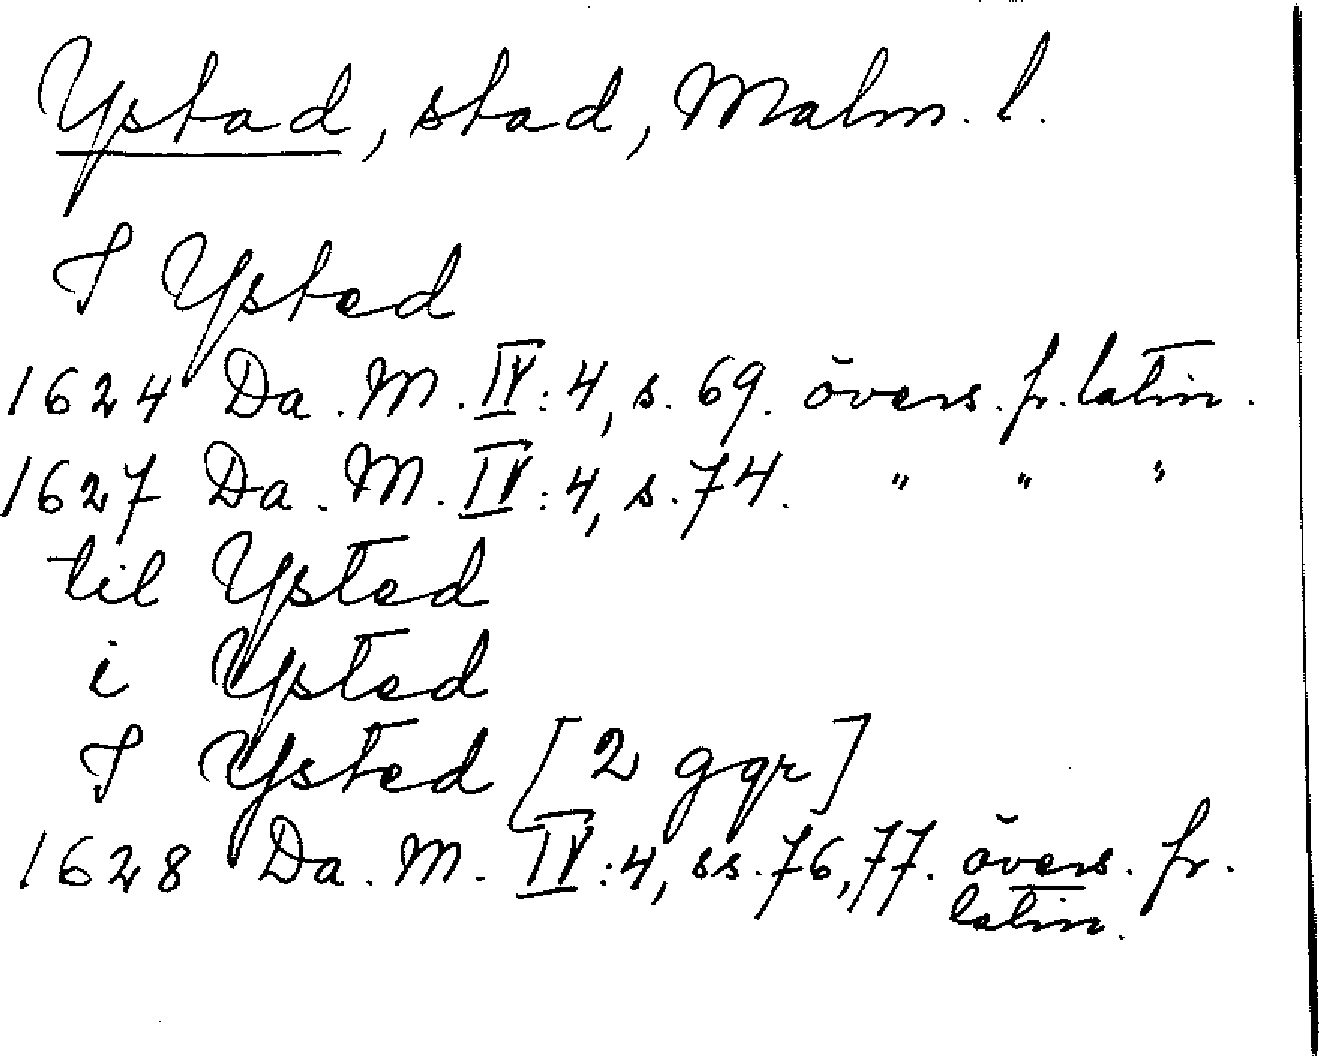 Ystad, stad, Malm. l.
I Ysted
1624 Da. M. IV:4, s. 69. övers. fr. latin.
1627 Da. M. IV:4, s. 74. " " "
til Ysted
i Ysted
I Ysted [2 ggr]
1628 Da. M. IV:4, ss. 76, 77. övers. fr.
latin.